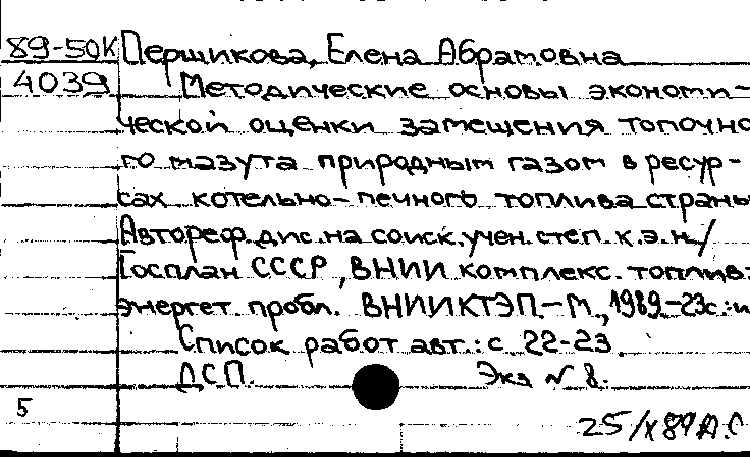 89-50К Першикова, Елена Абрамовна
4039 Методические основы экономи-
ческой оценки замещения топочно
го мазута природным газом в ресур-
сах котельно-печного топлива страны
Автореф.дис.на соиск.учен.степ.к.э.н/
Госплан СССР, ВНИИ комплекс.топлив.
энергет.пробл. ВНИИКТЭП.-М.,1989-23с.:и
Список работ авт.: с 22-23.
ДСП. Экз № 8.
5
25/X89